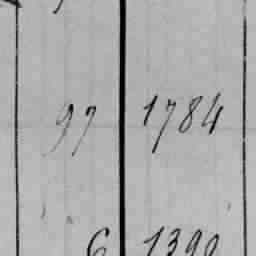 97 1784
6 1390